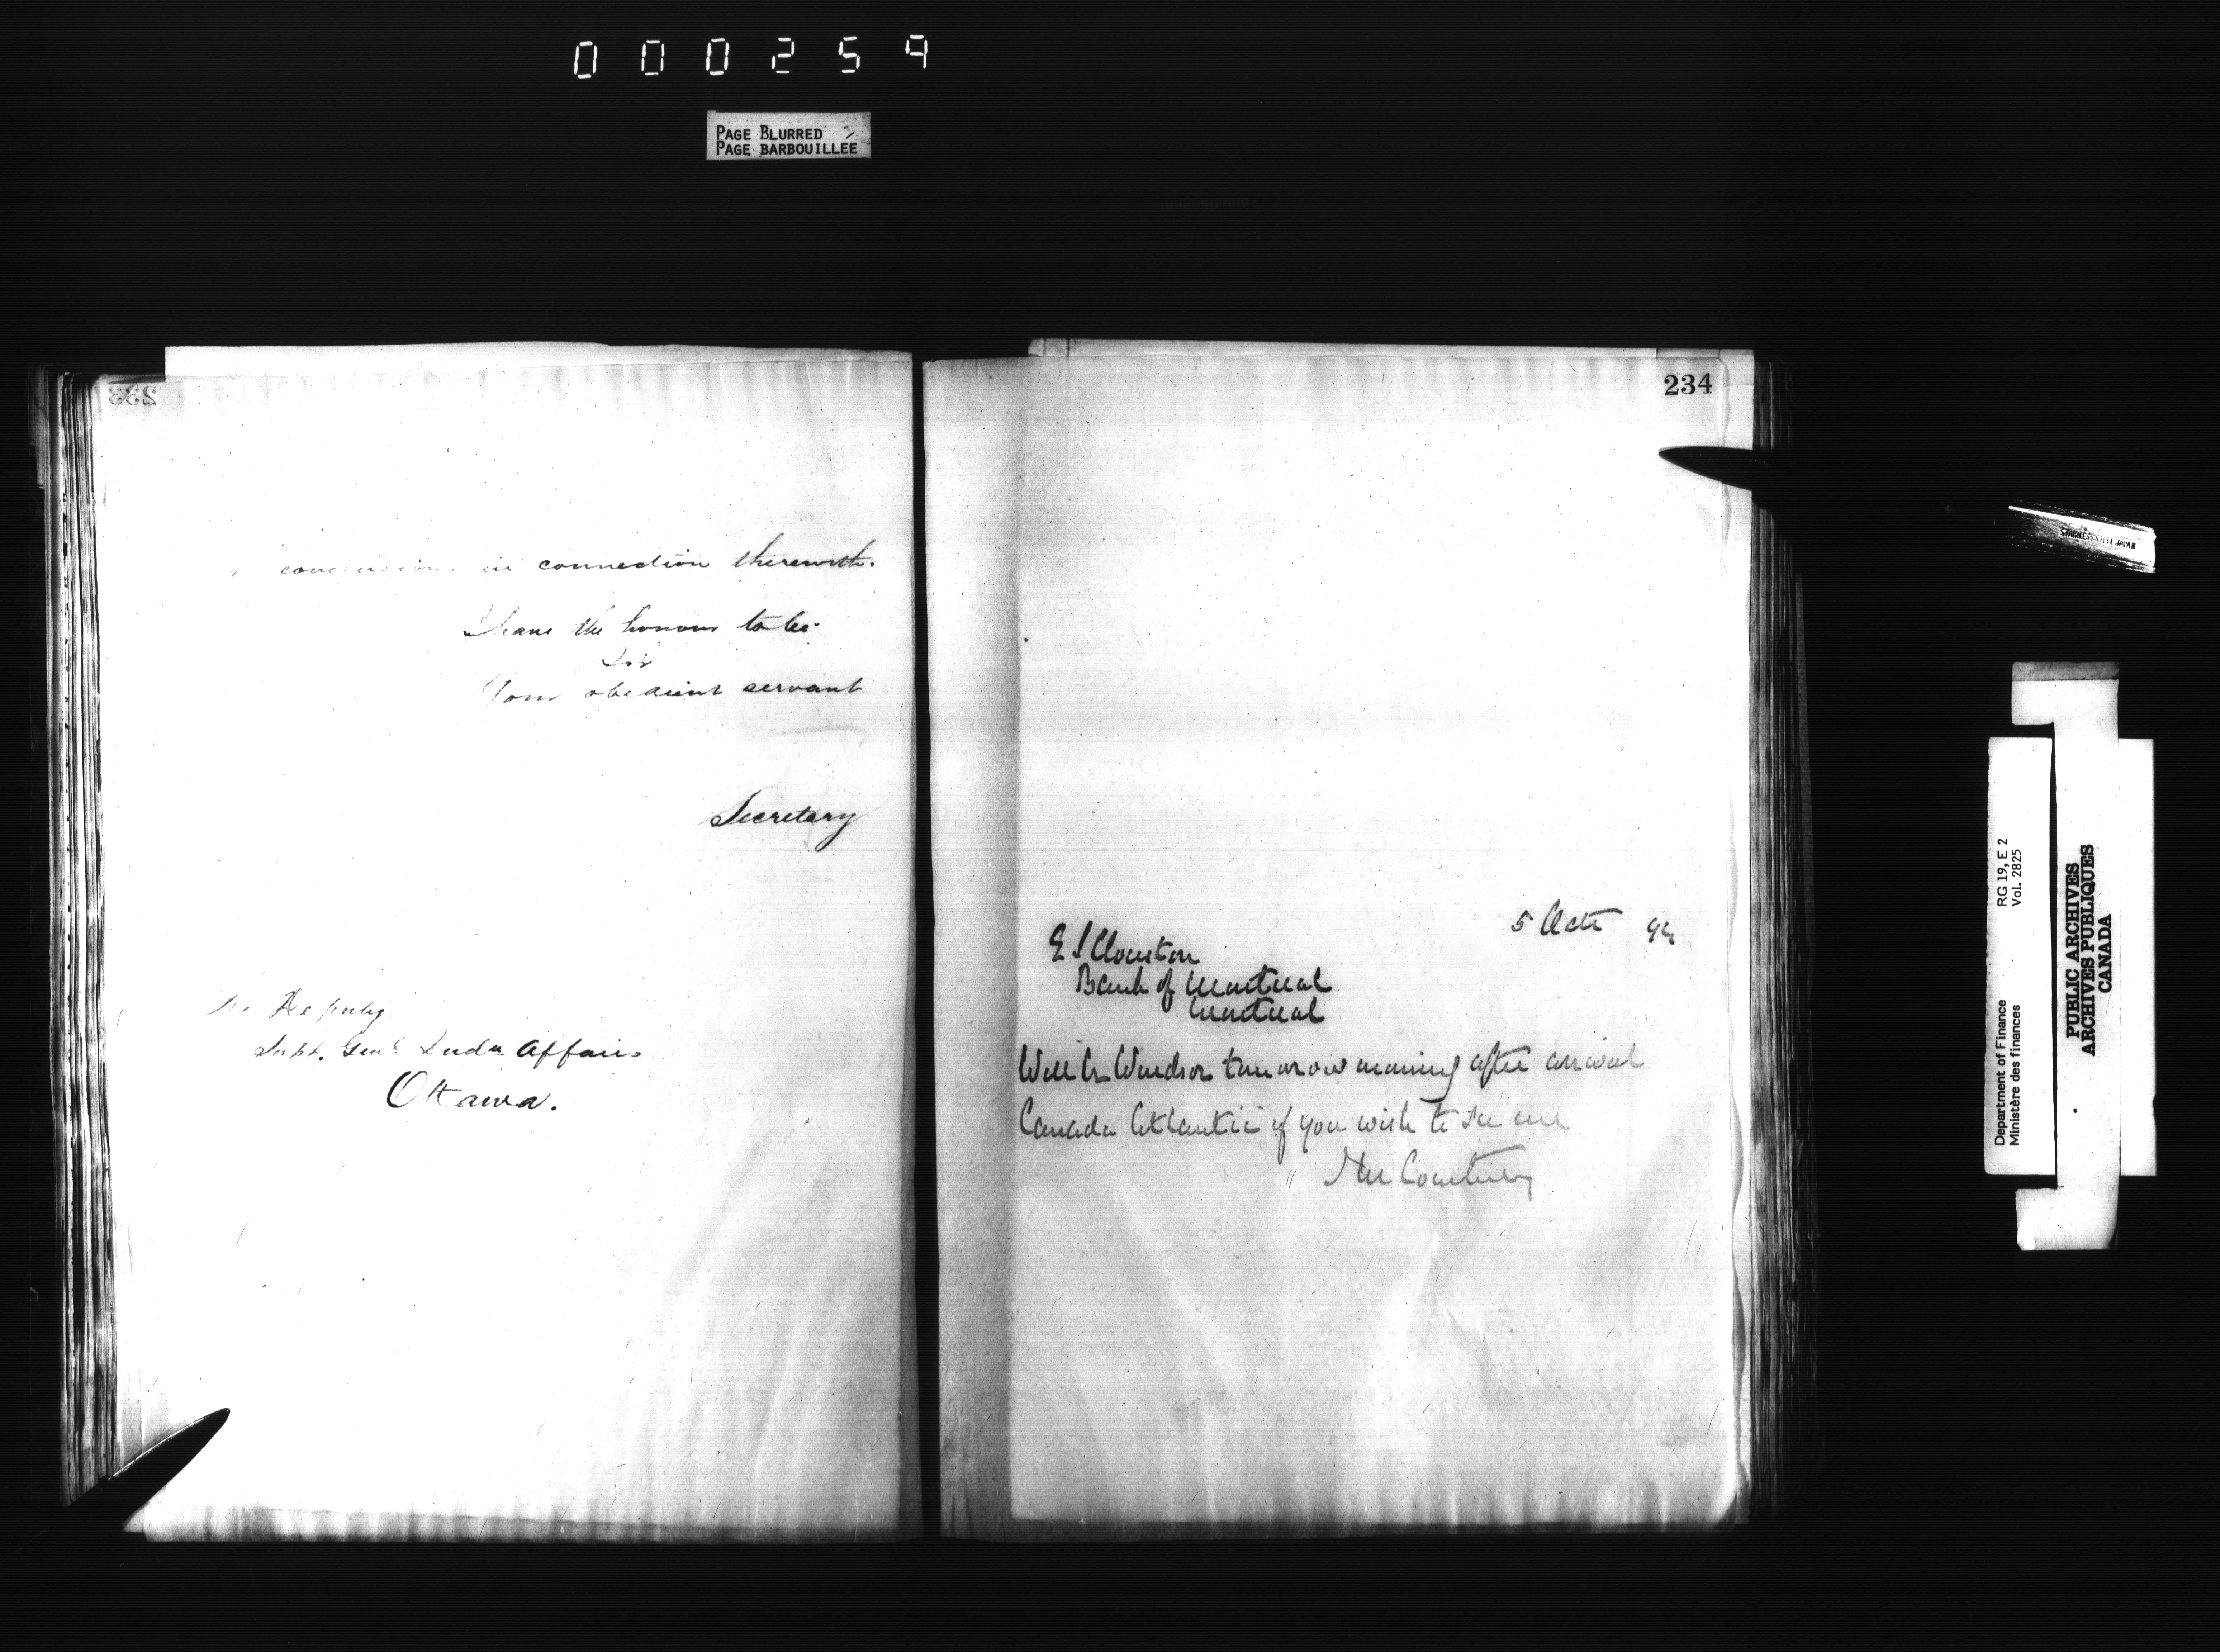 000259
PAGE BLURRED
PAGE BARBOUILLEE
233
conclusions in connection therewith.
I have the honour to be
Sir
Your obedient servant
Secretary
Deputy
Supt. Genl Indn Affairs
Ottawa.
234
5 Oct 94
E S Clouston
Bank of Montreal
Montreal
Will be Windsor tomorow morning after arrival
Canada Atlantic if you wish to see me
J M Courtney
STAINLESS STEEL JAPAN
Department of Finance RG 19, E 2
Ministère des finances Vol. 2825
PUBLIC ARCHIVES
ARCHIVES PUBLIQUES
CANADA